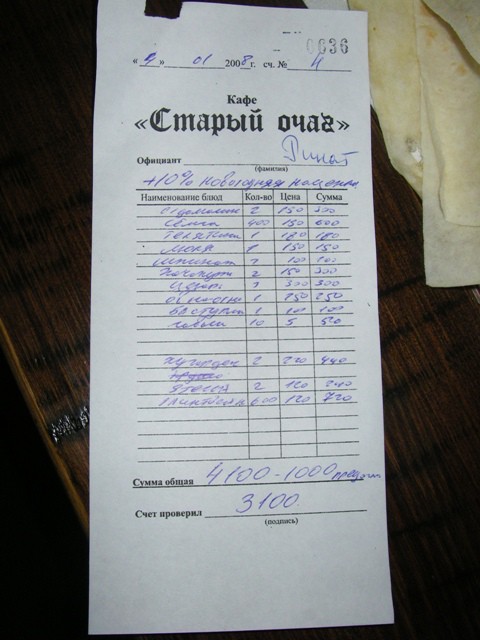 0636
« 4 » 01 2008 г. сч. № 4
Кафе
«Старый очаг»
Официант Ринат
(фамилия)
+10% новогодняя наценка
Наименование блюд Кол-во Цена Сумма
2 150 300
Семга 400 150 600
Телятина 1 180 180
1 150 150
Шпинат 1 100 100
Хачапури 2 150 300
Цезарь 1 300 300
1 250 250
1 100 100
10 5 50
Хугарден 2 220 440
2 120 240
600 120 720
Сумма общая 4100-1000
Счет проверил 3100.
(подпись)